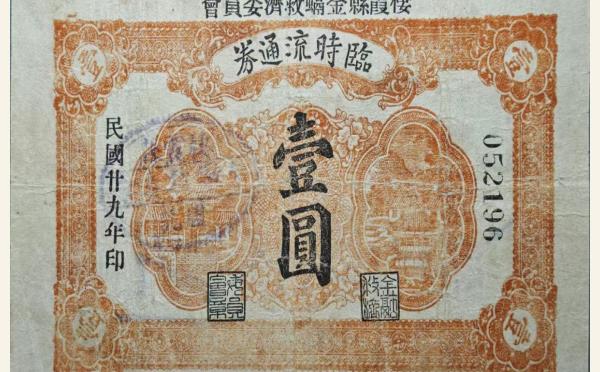 棲霞縣金融救濟委員會
臨時流通券
壹
壹
壹圓
052196
民國廿九年印
金融救濟
委員會章
壹
壹